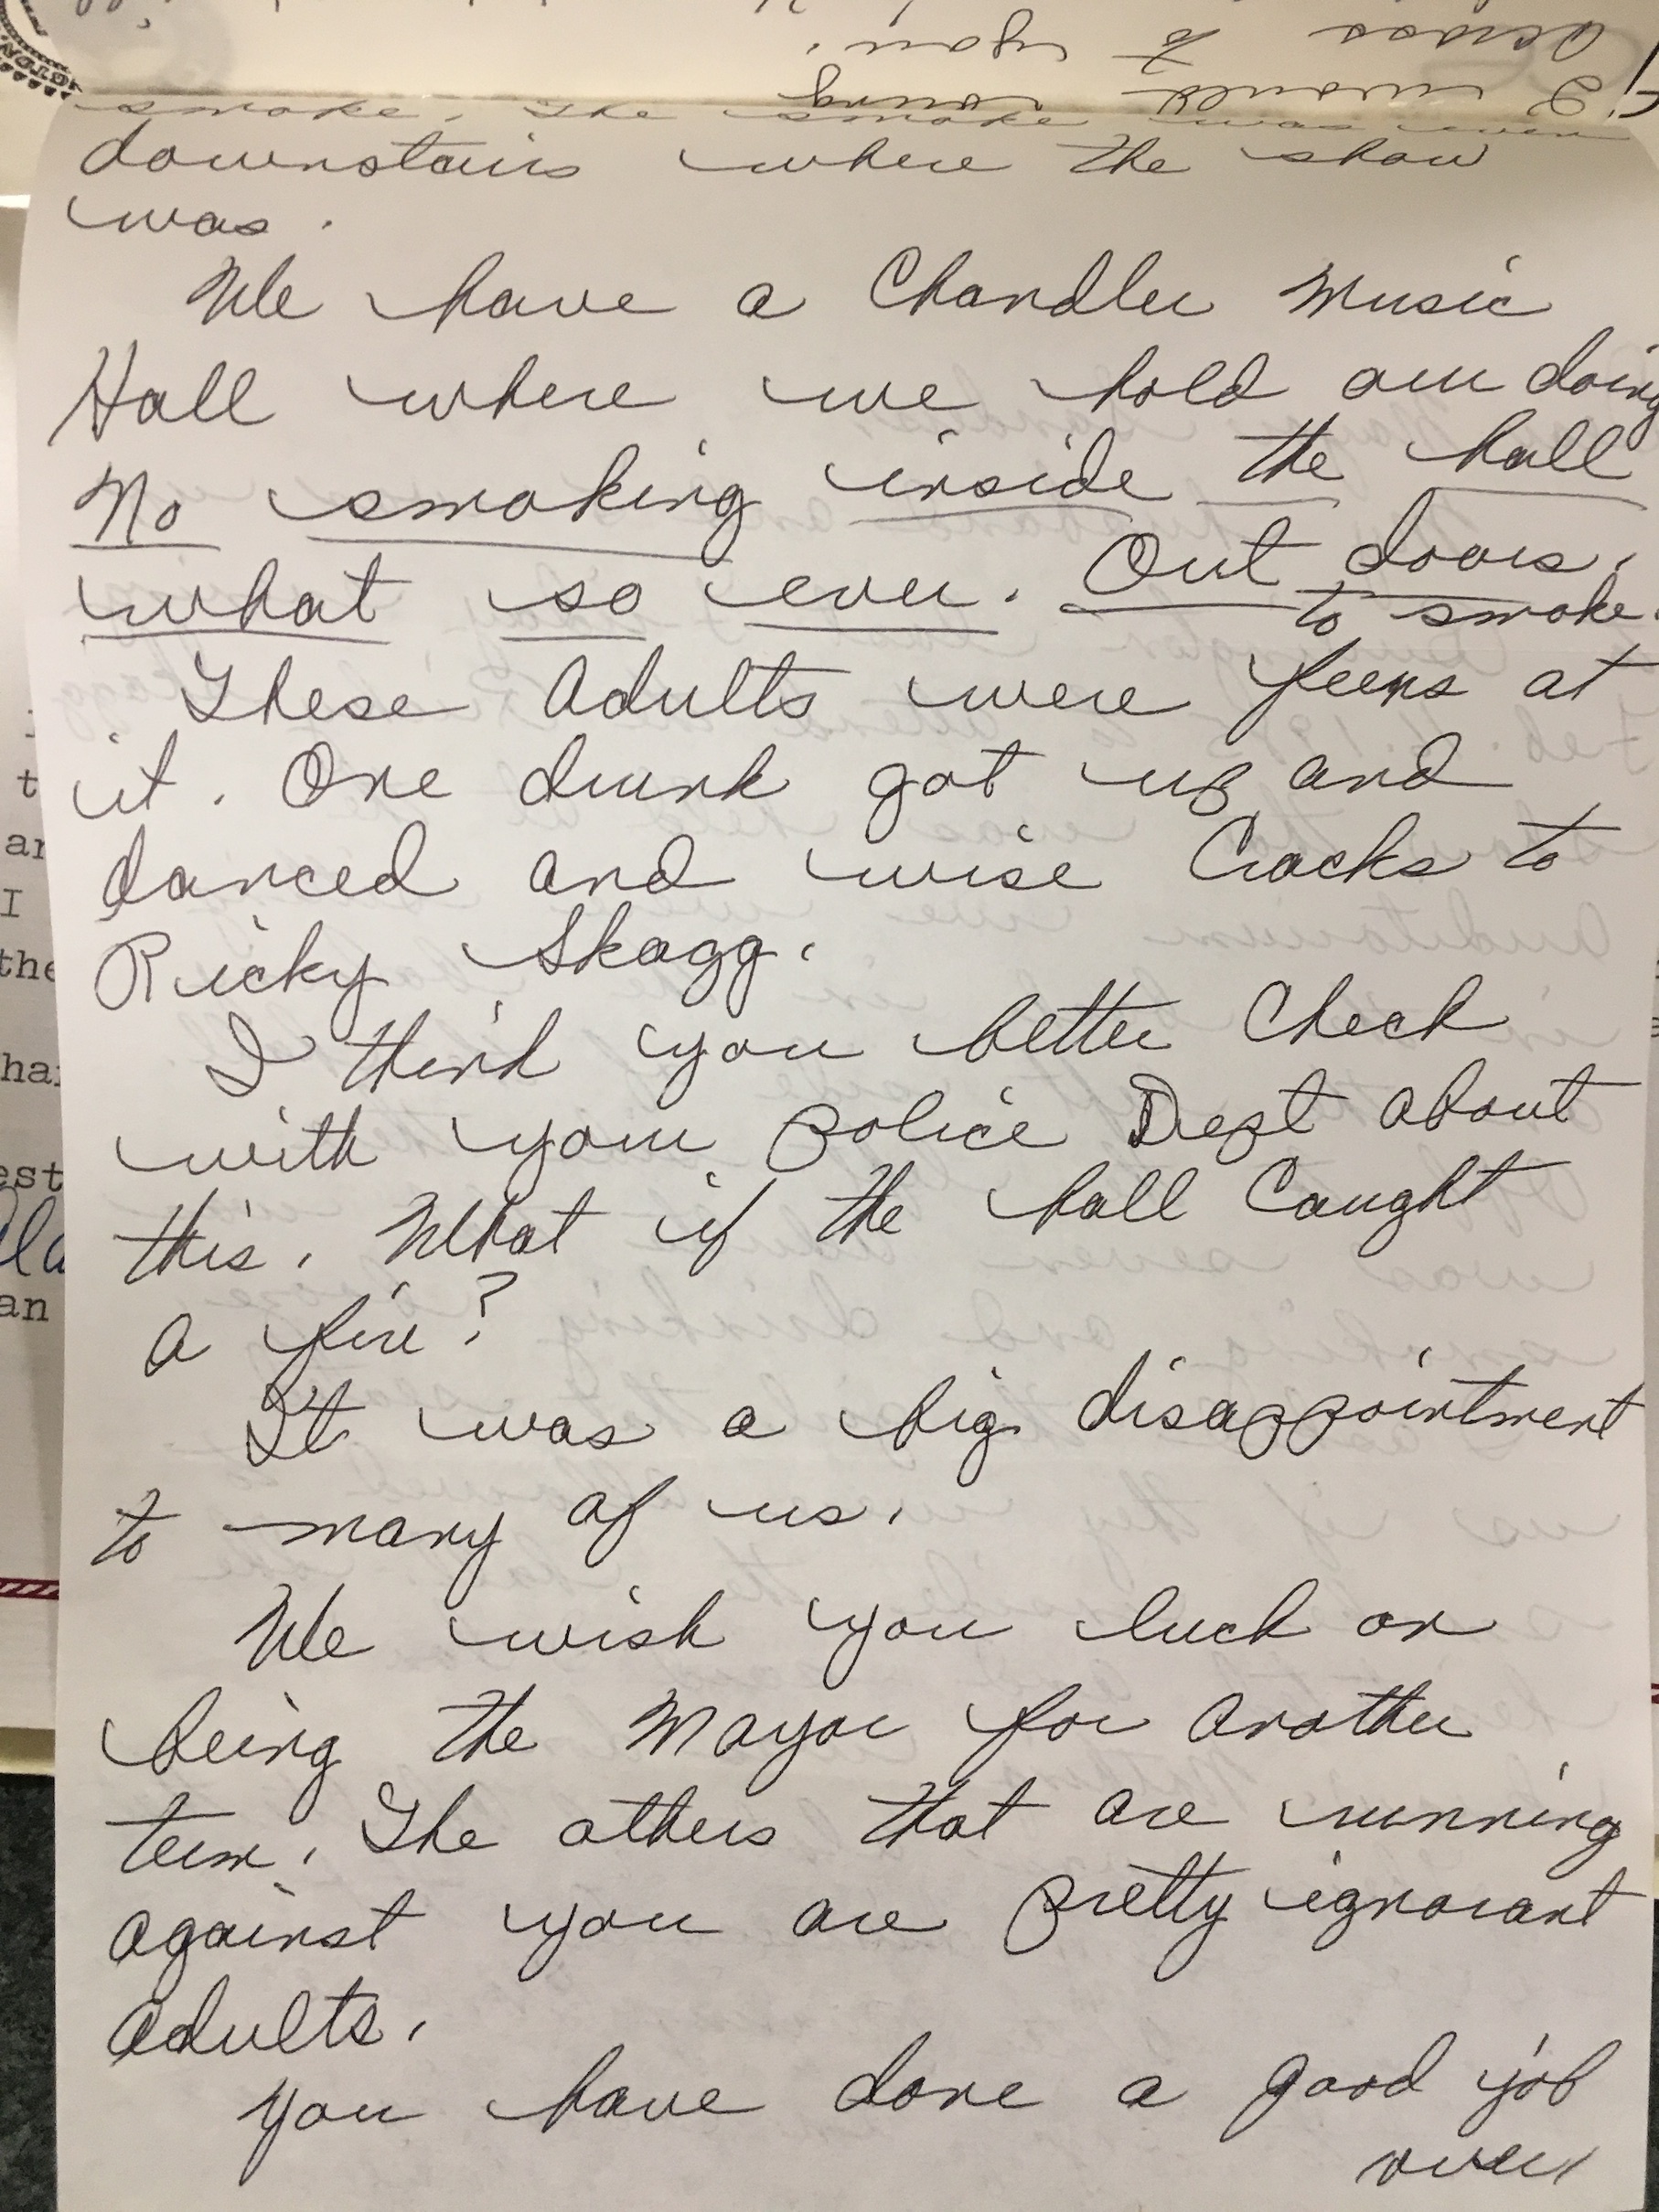 across to you.
I would coung
smoke. The smoke was even
downstairs where the show
was.
We have a Chandler Music
Hall where we hold our doing
No smoking inside the hall
what so ever. Out doors.
to smoke.
These adults were at
it. One drunk got up and
danced and wise Cracks to
Ricky Skagg.
I think you better Check
with your police Dept about
this. What if the hall Caught
a fire?
It was a big disappointment
to many of us.
We wish you luck on
being the Mayor for another
term. The others that are running
against you are pretty ignorant
adults.
You have done a good job
over